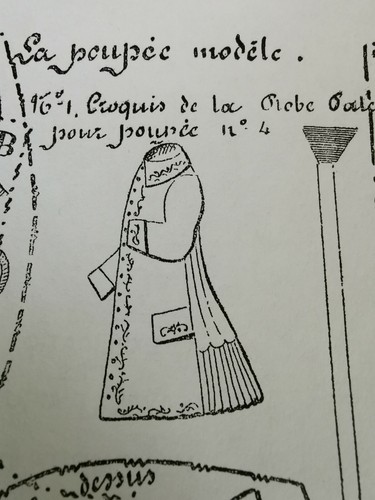 La poupée modèle.
N° 1. Croquis de la Robe
pour poupée n° 4
dessus